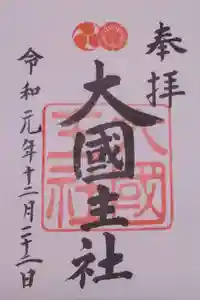 奉拝
大國主社
大國主社
令和元年十二月二十二日